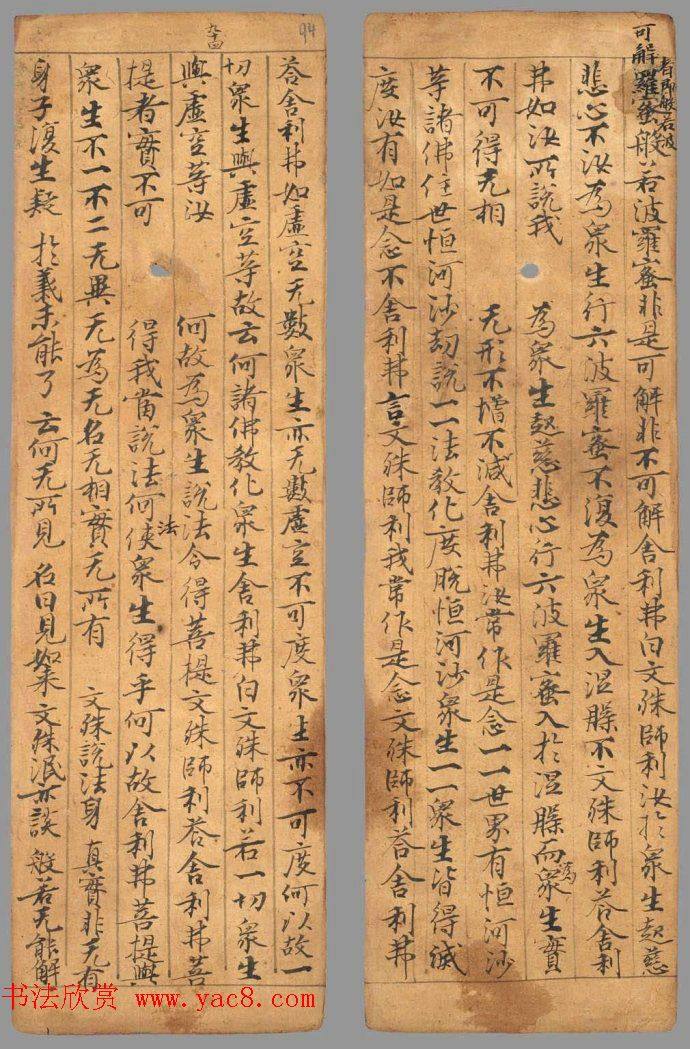 可解
者即般若波
羅蜜般若波羅蜜非是可解非不可解舍利弗白文殊師利汝於衆生起慈
悲心不汝為衆生行六波羅蜜不復為衆生入涅槃不文殊師利荅舍利
弗如汝所說我為衆生起慈悲心行六波羅蜜入於涅槃而衆生實
為
不可得无相无形不增不減舍利弗汝常作是念一一世界有恒河沙
等諸佛住世恒河沙劫說一一法教化度脫恒河沙衆生一一衆生皆得滅
度汝有如是念不舍利弗言文殊師利我常作是念文殊師利荅舍利弗
九十四
94
荅舍利弗如虛空无數衆生亦无數虛空不可度衆生亦不可度何以故一
切衆生與虛空等故云何諸佛教化衆生舍利弗白文殊師利若一切衆生
與虛空等汝何故為衆生說法令得菩提文殊師利荅舍利弗菩
提者實不可得我當說法何使衆生得乎何以故舍利弗菩提與
法
衆生不一不二无異无為无名无相實无所有 文殊說法身 真實非无有
身子復生疑 於義未能了 云何无所見 名曰見如来 文殊泯亦談 般若无能解
书法欣赏 www.yac8.com